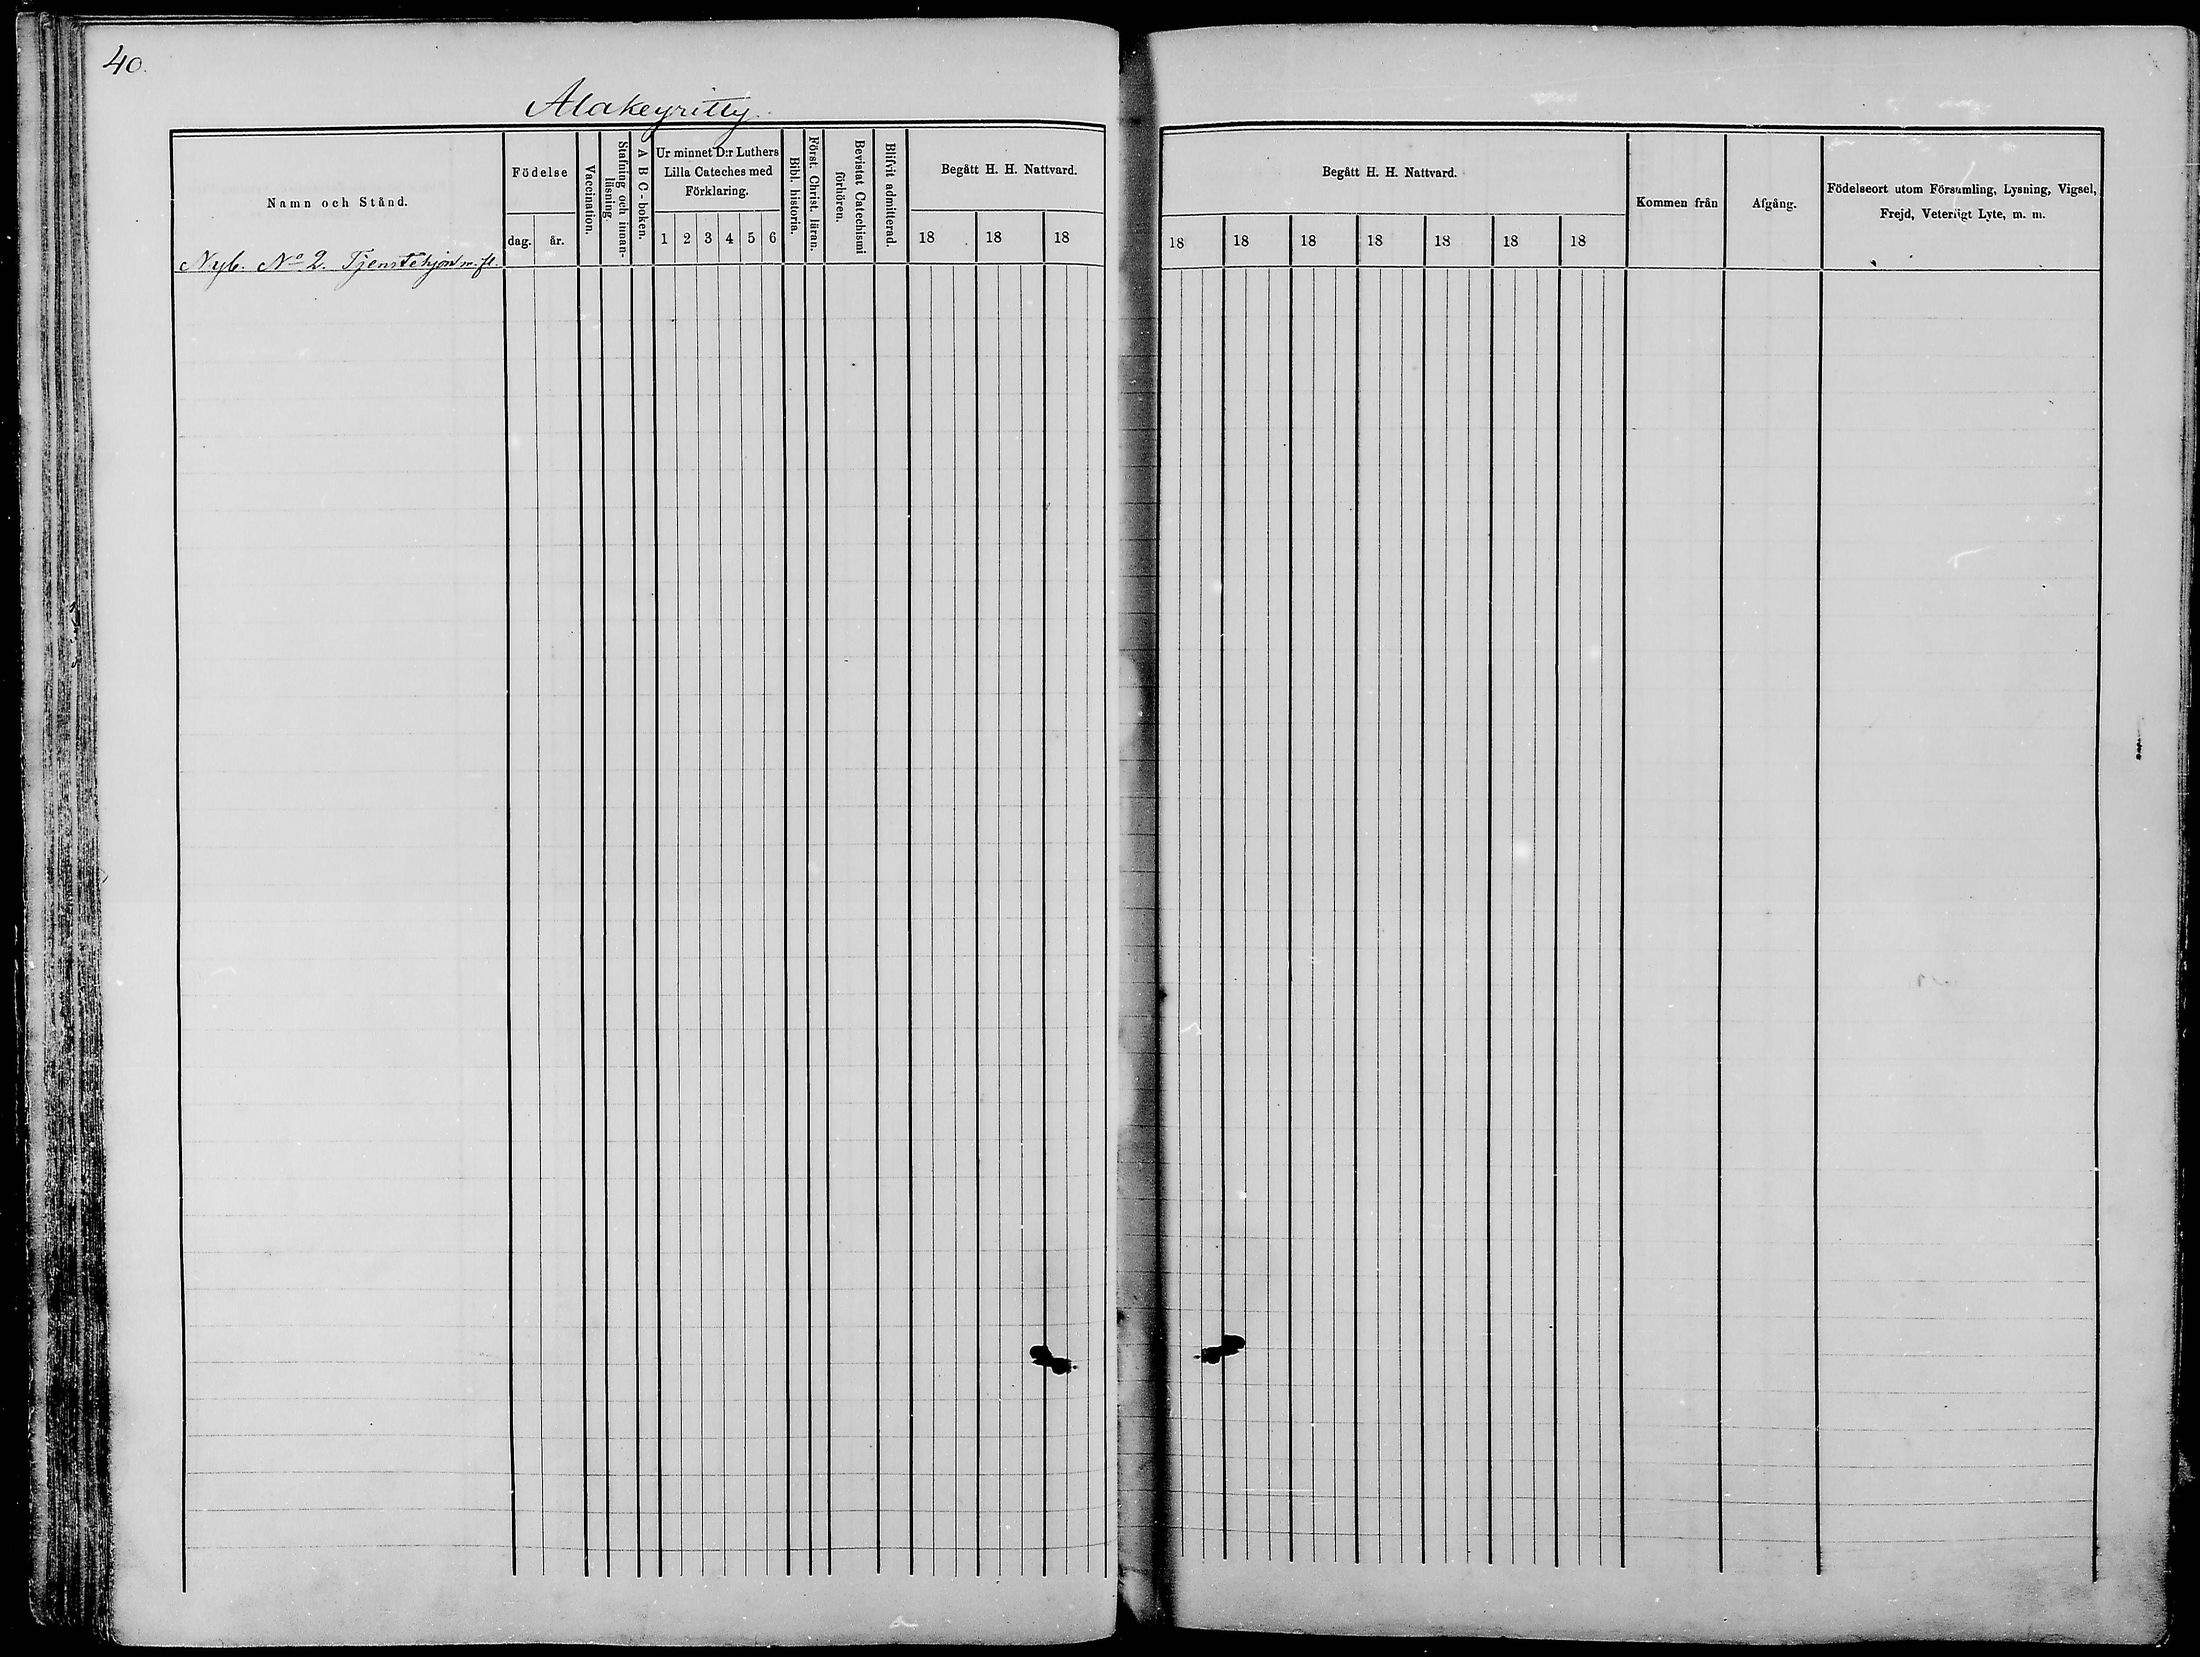 40.
Alakeyritty.
Namn och Stånd.
Födelse
dag.
år.
Vaccination.
Stafning och innan-
läsning
A B C-boken.
Ur minnet D:r Luthers
Lilla Cateches med
Förklaring.
1 2 3 4 5 6
Bibl. historia.
Först. Christ. läran.
Bevistat Catechismi
förhören.
Blifvit admitterad.
Begått H. H. Nattvard.
18 18 18
Nyb. No 2. Tjenstehjon m. fl.
Begått H. H. Nattvard.
18 18 18 18 18 18 18
Kommen från
Afgång.
Födelseort utom Församling, Lysning, Vigsel,
Frejd, Veterligt Lyte, m. m.